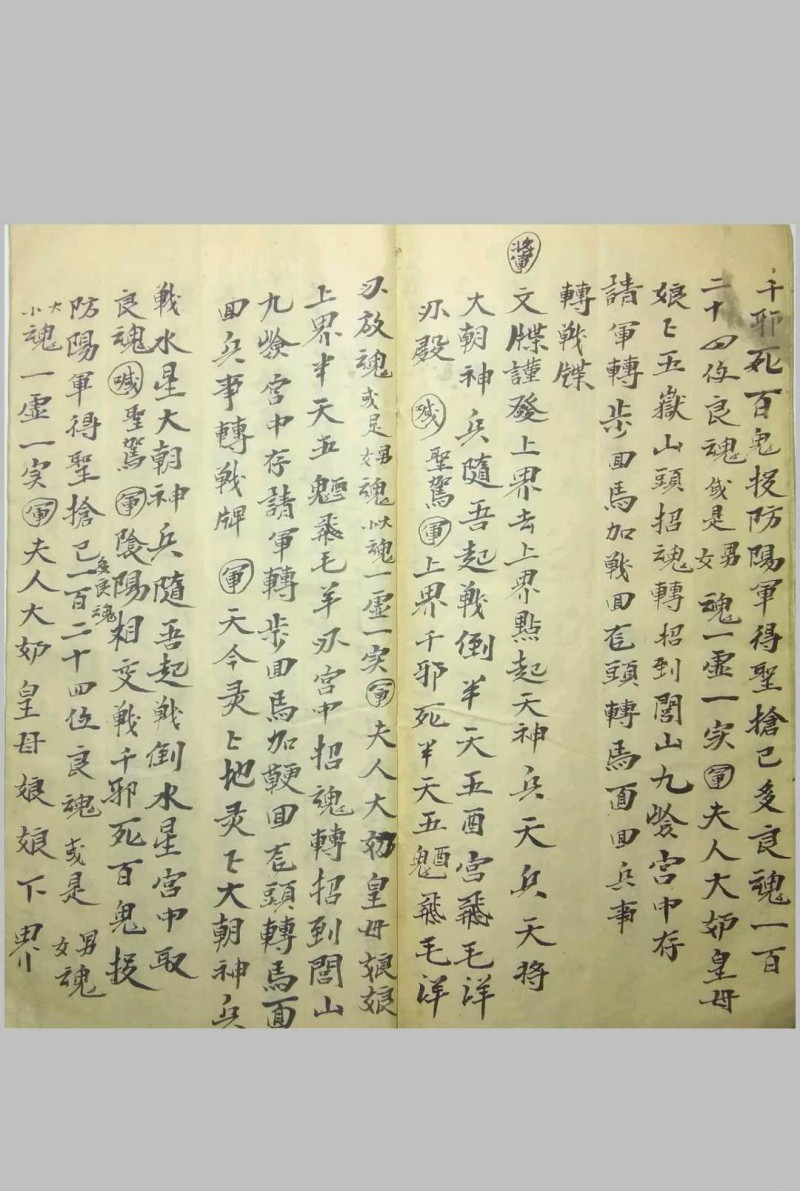 千邪死百鬼投防陽軍得聖搶已多良魂一百
二十四位良魂或是男女魂一虛一实軍夫人大奶皇母
娘〻五嶽山頭招魂轉招到閭山九僉宮中存
請軍轉步回馬加戦回頭轉馬面回兵事
轉戦牒
將軍文牒謹發上界去上界點起天神兵天兵天將
大朝神兵隨吾起戦倒半天五酉宮飛毛洋
殿喊聖駕軍上界千邪死半天五飛毛洋
放魂或是男女魂大小魂一虛一实軍夫人大奶皇母娘娘
上界半天五飛毛羊宮中招魂轉招到閭山
九宮中存請軍轉步回馬加鞕回頭轉馬面
回兵事轉戦牌軍天今灵〻地灵〻大朝神兵
戦水星大朝神兵隨吾起戦倒水星宮中取
良魂喊聖駕軍陰陽相交戦千邪死百鬼投
防陽軍得聖搶已多良魂一百二十四位良魂或是男女魂
大小魂一虛一实軍夫人大奶皇母娘娘下界